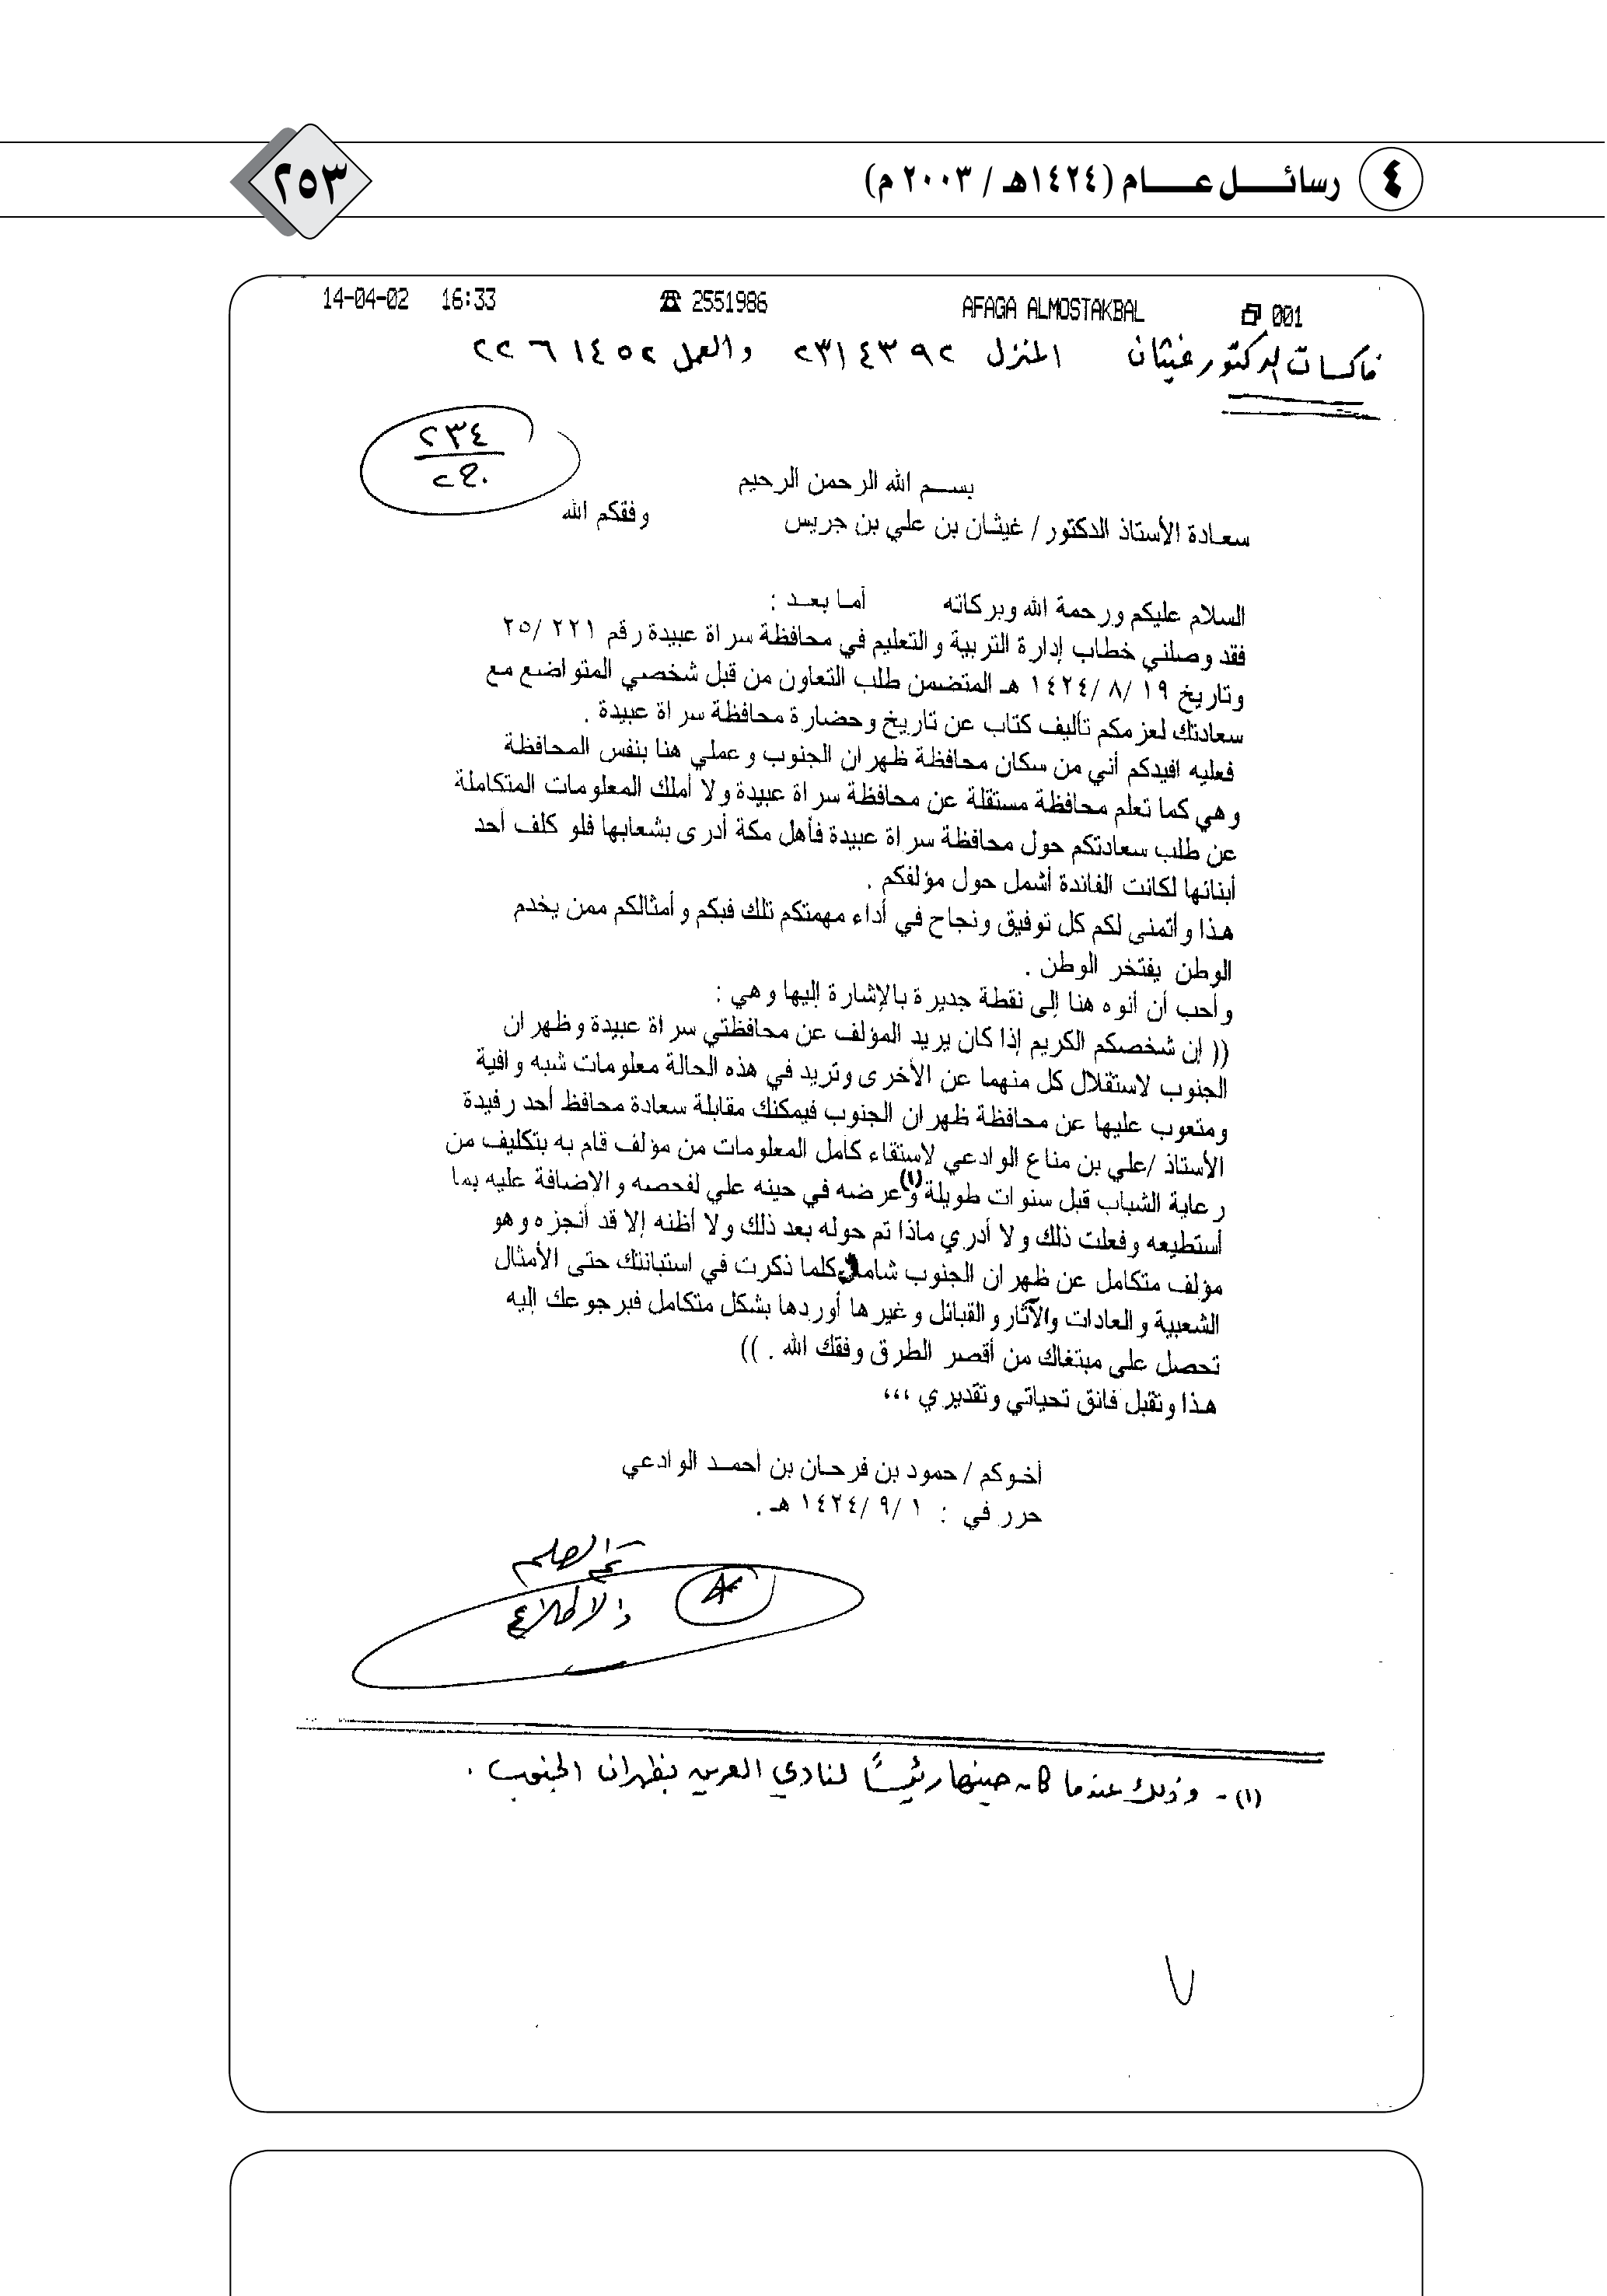 ٤ رسائل عام (١٤٢٤هـ / ٢٠٠٣ م)
٢٥٣
14-04-02 16:33 2551986 AFAGA ALMOSTAKBAL 001
فاكسات الدكتور غيثان المنزل ٢٣١٤٣٩٢ والعمل ٢٢٦١٤٥٢
٢٣٤
بسم الله الرحمن الرحيم
سعادة الأستاذ الدكتور / غيثان بن علي بن جريس وفقكم الله
السلام عليكم ورحمة الله وبركاته أما بعد :
فقد وصلني خطاب إدارة التربية والتعليم في محافظة سراة عبيدة رقم ٢٥/ ٢٢١
وتاريخ ١٩ /٨ /١٤٢٤ هـ المتضمن طلب التعاون من قبل شخصي المتواضع مع
سعادتك لعزمكم تأليف كتاب عن تاريخ وحضارة محافظة سراة عبيدة .
فعليه افيدكم أني من سكان محافظة ظهران الجنوب وعملي هنا بنفس المحافظة
وهي كما تعلم محافظة مستقلة عن محافظة سراة عبيدة ولا أملك المعلومات المتكاملة
عن طلب سعادتكم حول محافظة سراة عبيدة فأهل مكة أدرى بشعابها فلو كلف أحد
أبنائها لكانت الفائدة أشمل حول مؤلفكم .
هذا وأتمنى لكم كل توفيق ونجاح في أداء مهمتكم تلك فبكم وأمثالكم ممن يخدم
الوطن يفتخر الوطن .
وأحب أن أنوه هنا إلى نقطة جديرة بالإشارة إليها وهي :
(( إن شخصكم الكريم إذا كان يريد المؤلف عن محافظتي سراة عبيدة وظهران
الجنوب لاستقلال كل منهما عن الأخرى وتريد في هذه الحالة معلومات شبه وافية
ومتعوب عليها عن محافظة ظهران الجنوب فيمكنك مقابلة سعادة محافظ أحد رفيدة
الأستاذ /علي بن مناع الوادعي لاستقاء كامل المعلومات من مؤلف قام به بتكليف من
رعاية الشباب قبل سنوات طويلة (١) وعرضه في حينه علي لفحصه والإضافة عليه بما
أستطيعه وفعلت ذلك ولا أدري ماذا تم حوله بعد ذلك ولا أظنه إلا قد أنجزه وهو
مؤلف متكامل عن ظهران الجنوب شامل كلما ذكرت في استبانتك حتى الأمثال
الشعبية والعادات والآثار والقبائل وغيرها أوردها بشكل متكامل فبرجوعك إليه
تحصل على مبتغاك من أقصر الطرق وفقك الله . ))
هذا وتقبل فائق تحياتي وتقديري ،،،
أخوكم / حمود بن فرحان بن أحمد الوادعي
حرر في : ١ /٩ /١٤٢٤ هـ .
تم العلم
والاطلاع
(١) - وذلك عندما كان حينها رئيسًا لنادي العرين بظهران الجنوب .
٧